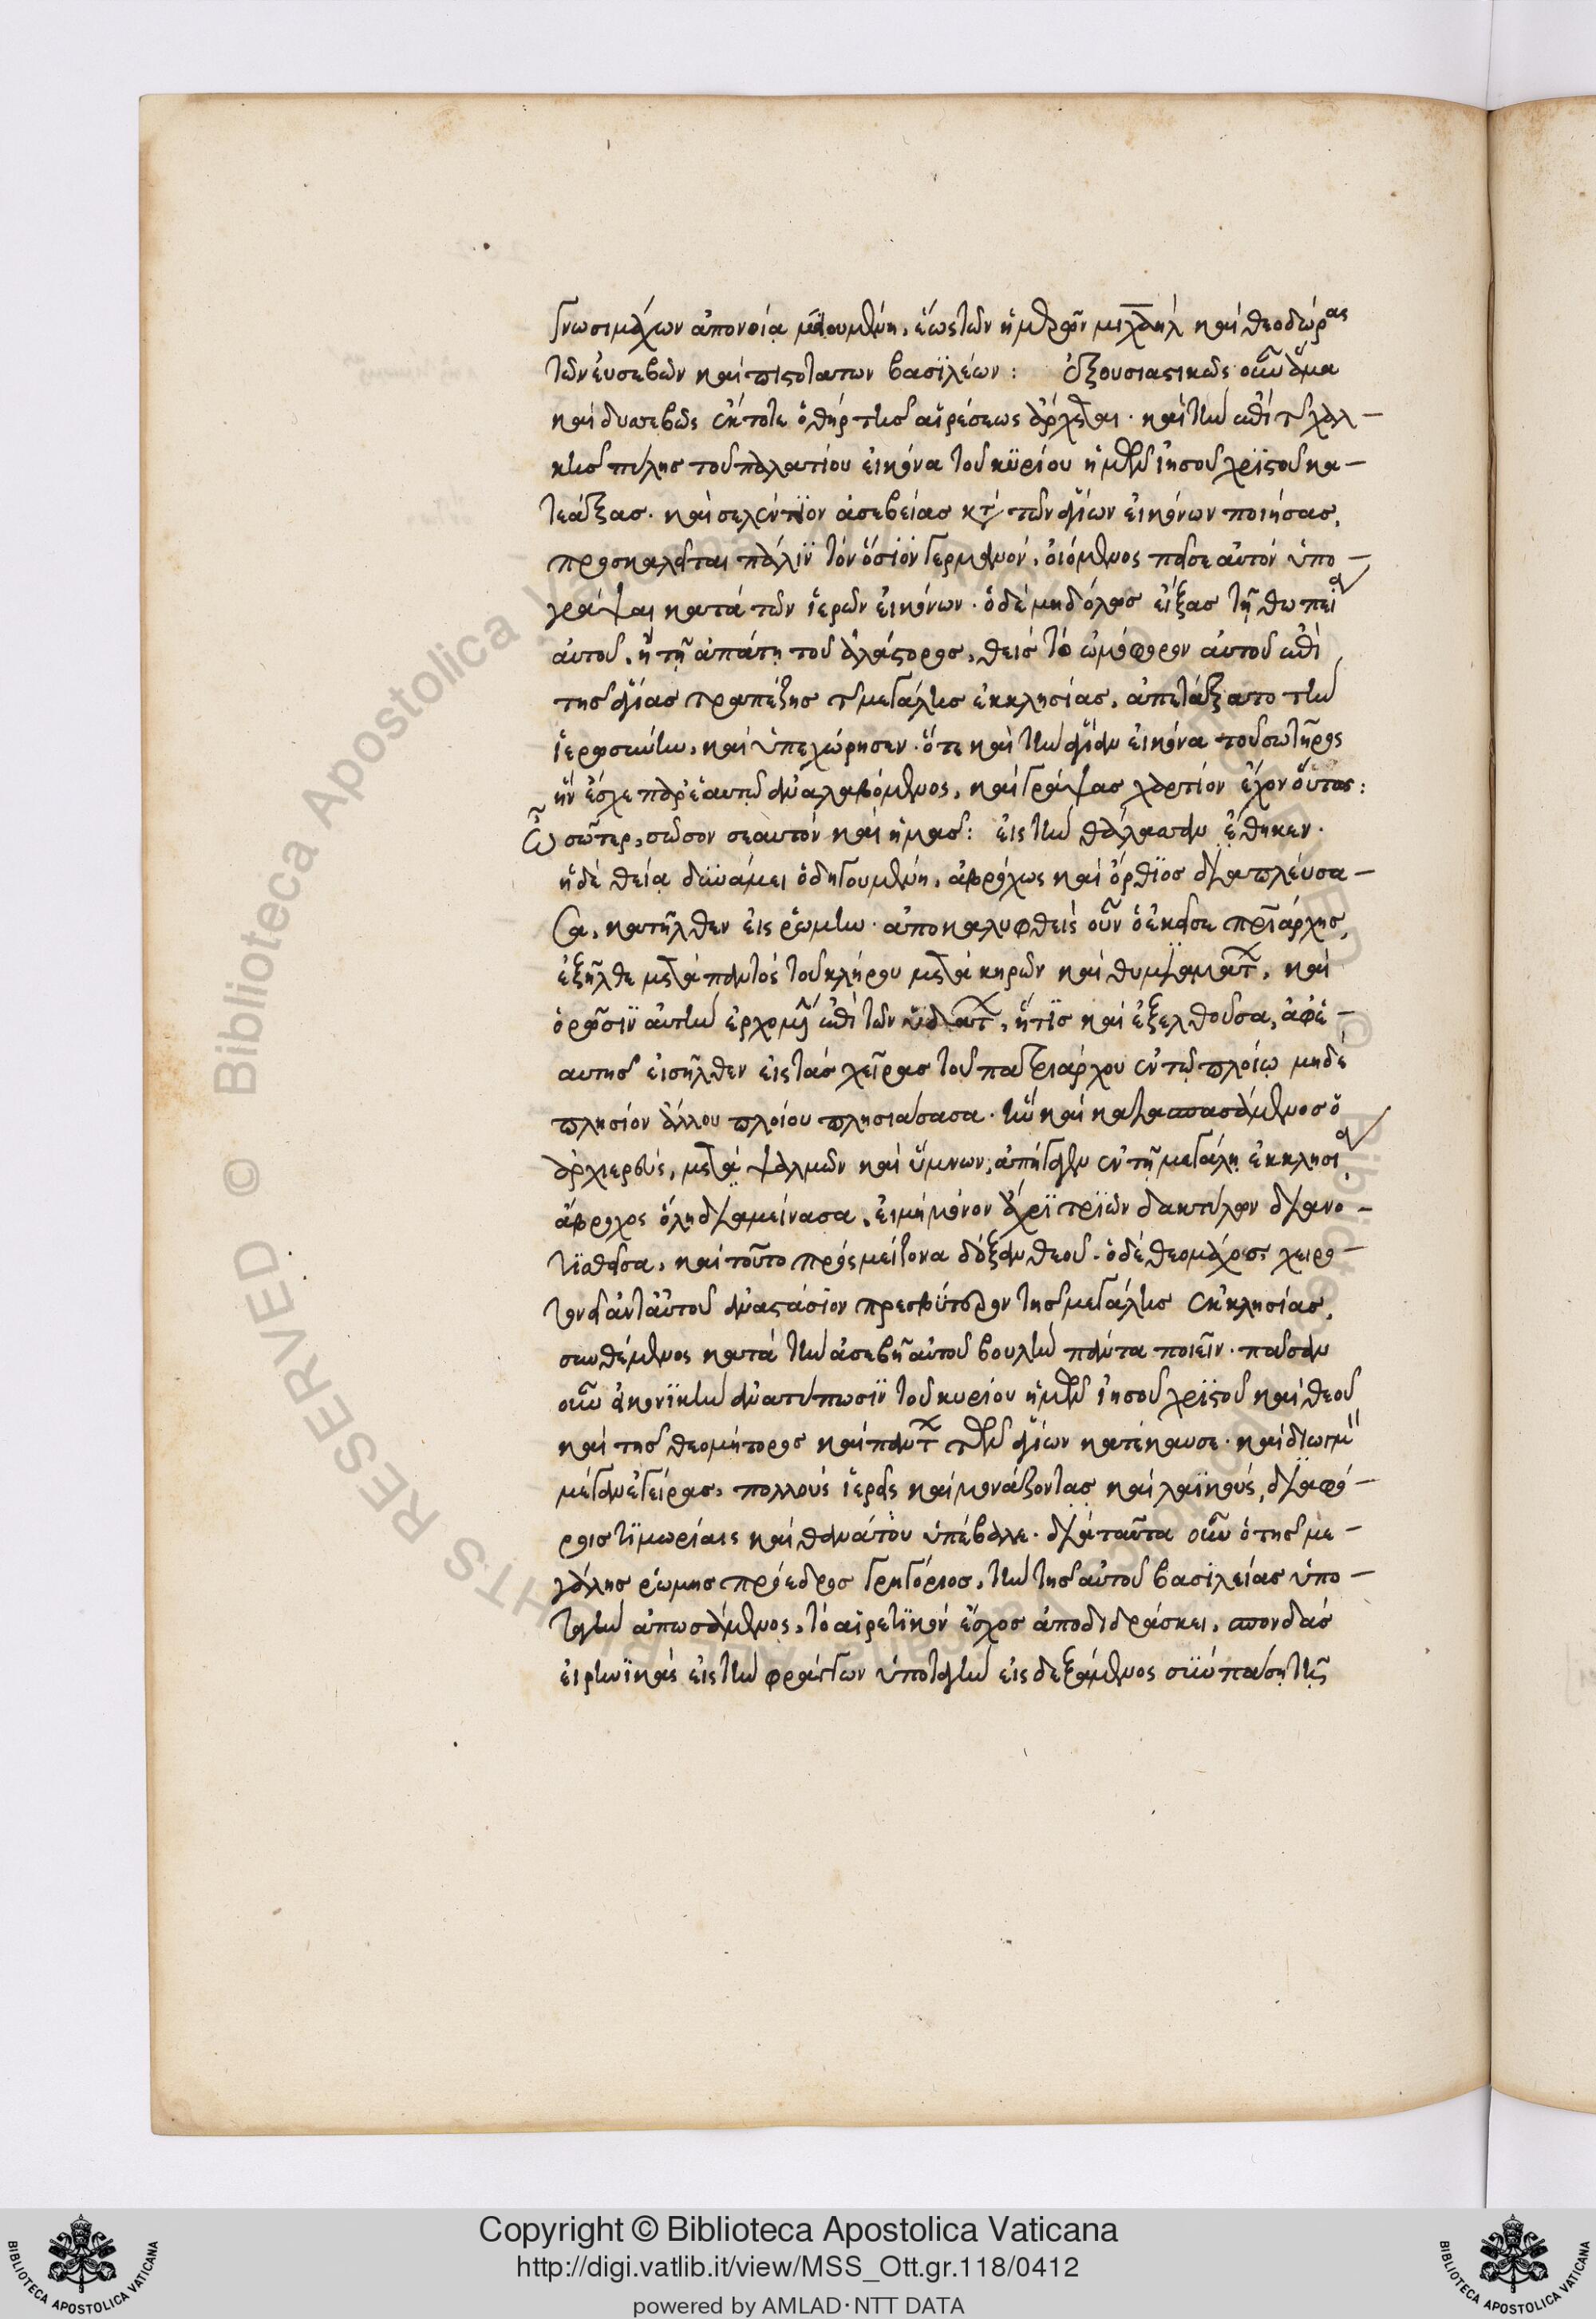 γνωσιμάχων ἀπονοία μαινομένη, ἕως τῶν ἡμερῶν μιχαὴλ καὶ θεοδώρας
τῶν εὐσεβῶν καὶ πιστοτάτων βασιλέων: ἐξουσιαστικῶς οὖν ἅμα
καὶ δυσσεβῶς ἔκτοτε ὁ θὴρ τῆς αἱρέσεως ἄρχεται. καὶ τὴν ἐπὶ τῆς χαλ-
κῆς πύλης τοῦ παλατίου εἰκόνα τοῦ κυρίου ἡμῶν ἰησοῦ χριστοῦ κα-
τεάξας. καὶ σελέντιον ἀσεβείας κατὰ τῶν ἁγίων εἰκόνων ποιήσας,
προσκαλεῖται πάλιν τὸν ὅσιον γερμανόν, οἰόμενος πεῖσαι αὐτὸν ὑπο-
γράψαι κατὰ τῶν ἱερῶν εἰκόνων. ὁ δὲ μηδόλως εἴξας τῇ θωπεία
αὐτοῦ, ἢ τῇ ἀπάτῃ τοῦ ἀλάστορος, θεὶς τὸ ὠμόφορον αὐτοῦ ἐπὶ
τῆς ἁγίας τραπέζης τῆς μεγάλης ἐκκλησίας, ἀπετάξατο τὴν
ἱερωσύνην, καὶ ὑπεχώρησεν. ὅτε καὶ τὴν ἁγίαν εἰκόνα τοῦ σωτῆρος
ἣν ἔσχε παρ' ἑαυτῷ ἀναλαβόμενος, καὶ γράψας χαρτίον ἔχον οὕτως:
Ὦ σῶτερ, σῶσον σεαυτὸν καὶ ἡμᾶς: εἰς τὴν θάλασσαν ἔθηκεν.
ἡ δὲ θεία δυνάμει ὁδηγουμένη, ἀβρόχως καὶ ὄρθιος διαπλεύσα-
σα, κατῆλθεν εἰς ῥώμην. ἀποκαλυφθεὶς οὖν ὁ ἐκεῖσε πριάρχης,
ἐξῆλθε μετὰ παντὸς τοῦ κλήρου μετὰ κηρῶν καὶ θυμιαμάτων, καὶ
ὁρῶσιν αὐτὴν ἐρχομένην ἐπὶ τῶν ὑδάτων, ἥτις καὶ ἐξελθοῦσα, ἀφ' ἑ-
αυτῆς εἰσῆλθεν εἰς τὰς χεῖρας τοῦ πατριάρχου ἐν τῷ πλοίῳ μηδὲ
πλησίον ἄλλου πλοίου πλησιάσασα. ἣν καὶ κατασπασάμενος ὁ
ἀρχιερεύς, μετὰ ψαλμῶν καὶ ὕμνων, ἀπήγαγεν ἐν τῇ μεγάλῃ ἐκκλησία
ἄβροχος ὅλη διαμείνασα, εἰ μὴ μόνον ἄχρι τριῶν δακτύλων διανο-
τισθεῖσα, καὶ τοῦτο πρὸς μείζονα δόξαν θεοῦ. ὁ δὲ θεομάχος, χειρο-
τονεῖ ἀντ' αὐτοῦ ἀναστάσιον πρεσβύτερον τῆς μεγάλης ἐκκλησίας,
συνθέμενος κατὰ τὴν ἀσεβῆ αὐτοῦ βουλὴν πάντα ποιεῖν. πᾶσαν
οὖν εἰκονικὴν ἀνατύπωσιν τοῦ κυρίου ἡμῶν ἰησοῦ χριστοῦ καὶ θεοῦ
καὶ τῆς θεομήτορος καὶ πάντων τῶν ἁγίων κατέκαυσε. καὶ διωγμὸν
μέγαν ἐγείρας, πολλοὺς ἱερεῖς καὶ μονάζοντας καὶ λαϊκοὺς, διαφό-
ροις τιμωρίαις καὶ θανάτου ὑπέβαλε. διὰ ταῦτα οὖν ὁ τῆς με-
γάλης ῥώμης πρόεδρος γρηγόριος, τὴν τῆς αὐτοῦ βασιλείας ὑπο-
ταγὴν ἀπωσάμενος, τὸ αἱρετικὸν ἔσχος ἀποδιδράσκει, σπονδὰς
εἰρηνικὰς εἰς τὴν φράγγων ὑποταγὴν εἰσδεξάμενος σὺν πάσῃ τῇ
Copyright © Biblioteca Apostolica Vaticana
http://digi.vatlib.it/view/MSS_Ott.gr.118/0412
powered by AMLAD·NTT DATA